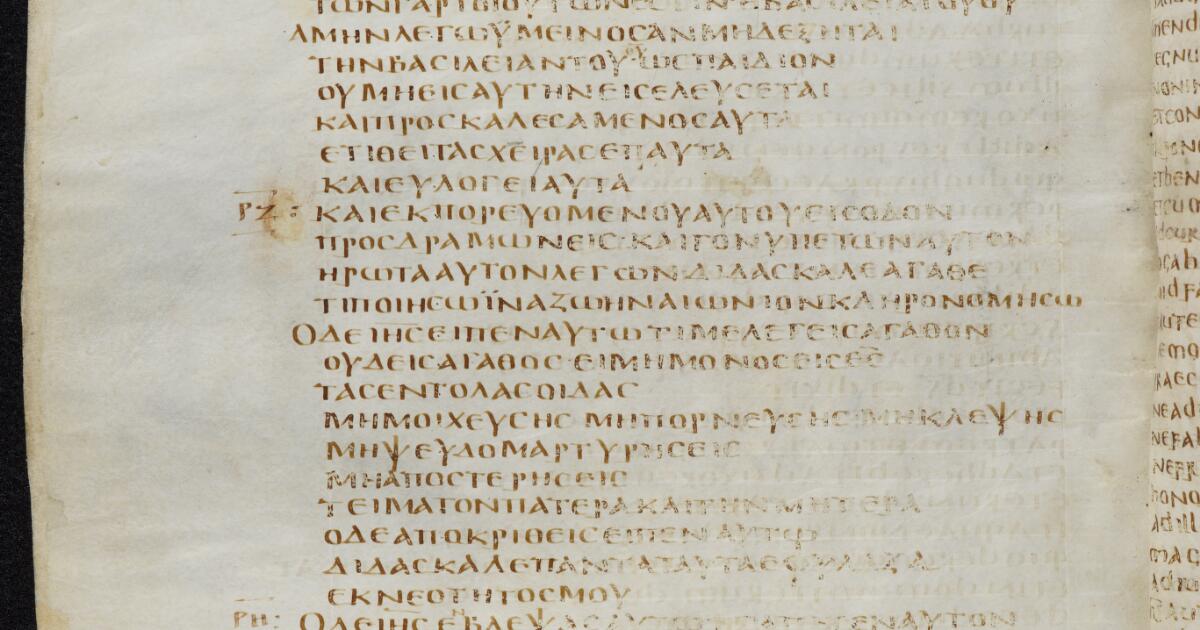 ΤΩΝΓΑΡΤΟΙΟΥΤΩΝΕΣΤΙΝΗΒΑΣΙΛΕΙΑΤΟΥΘΥ
ΑΜΗΝΛΕΓΩΫΜΕΙΝΟΣΑΝΜΗΔΕΞΗΤΑΙ
ΤΗΝΒΑΣΙΛΕΙΑΝΤΟΥΘΥΩΣΠΑΙΔΙΟΝ
ΟΥΜΗΕΙΣΑΥΤΗΝΕΙΣΕΛΕΥΣΕΤΑΙ
ΚΑΙΠΡΟΣΚΑΛΕΣΑΜΕΝΟΣΑΥΤΑ
ΕΤΙΘΕΙΤΑΣΧΕΙΡΑΣΕΠΑΥΤΑ
ΚΑΙΕΥΛΟΓΕΙΑΥΤΑ
ΡΖ: ΚΑΙΕΚΠΟΡΕΥΟΜΕΝΟΥΑΥΤΟΥΕΙΣΟΔΟΝ
ΠΡΟΣΔΡΑΜΩΝΕΙΣ·ΚΑΙΓΟΝΥΠΕΤΩΝΑΥΤΟΝ
ΗΡΩΤΑΑΥΤΟΝΛΕΓΩΝ·ΔΙΔΑΣΚΑΛΕΑΓΑΘΕ
ΤΙΠΟΙΗΣΩΪΝΑΖΩΗΝΑΙΩΝΙΟΝΚΛΗΡΟΝΟΜΗΣΩ
ΟΔΕΙΗΣΕΙΠΕΝΑΥΤΩΤΙΜΕΛΕΓΕΙΣΑΓΑΘΟΝ
ΟΥΔΕΙΣΑΓΑΘΟΣ·ΕΙΜΗΜΟΝΟΣΕΙΣΘΣ
ΤΑΣΕΝΤΟΛΑΣΟΙΔΑΣ
ΜΗΜΟΙΧΕΥΣΗΣ·ΜΗΠΟΡΝΕΥΣΗΣ·ΜΗΚΛΕΨΗΣ
ΜΗΨΕΥΔΟΜΑΡΤΥΡΗΣΕΙΣ
ΜΗΑΠΟΣΤΕΡΗΣΕΙΣ
ΤΕΙΜΑΤΟΝΠΑΤΕΡΑΚΑΙΤΗΝΜΗΤΕΡΑ
ΟΔΕΑΠΟΚΡΙΘΕΙΣΕΙΠΕΝΑΥΤΩ
ΔΙΔΑΣΚΑΛΕΠΑΝΤΑΤΑΥΤΑΕΦΥΛΑΞΑ
ΕΚΝΕΟΤΗΤΟΣΜΟΥ
ΡΗ: ΟΔΕΙΗΣΕΝΒΛΕΨΑΣΑΥΤΩΗΓΑΠΗΣΕΝΑΥΤΟΝ